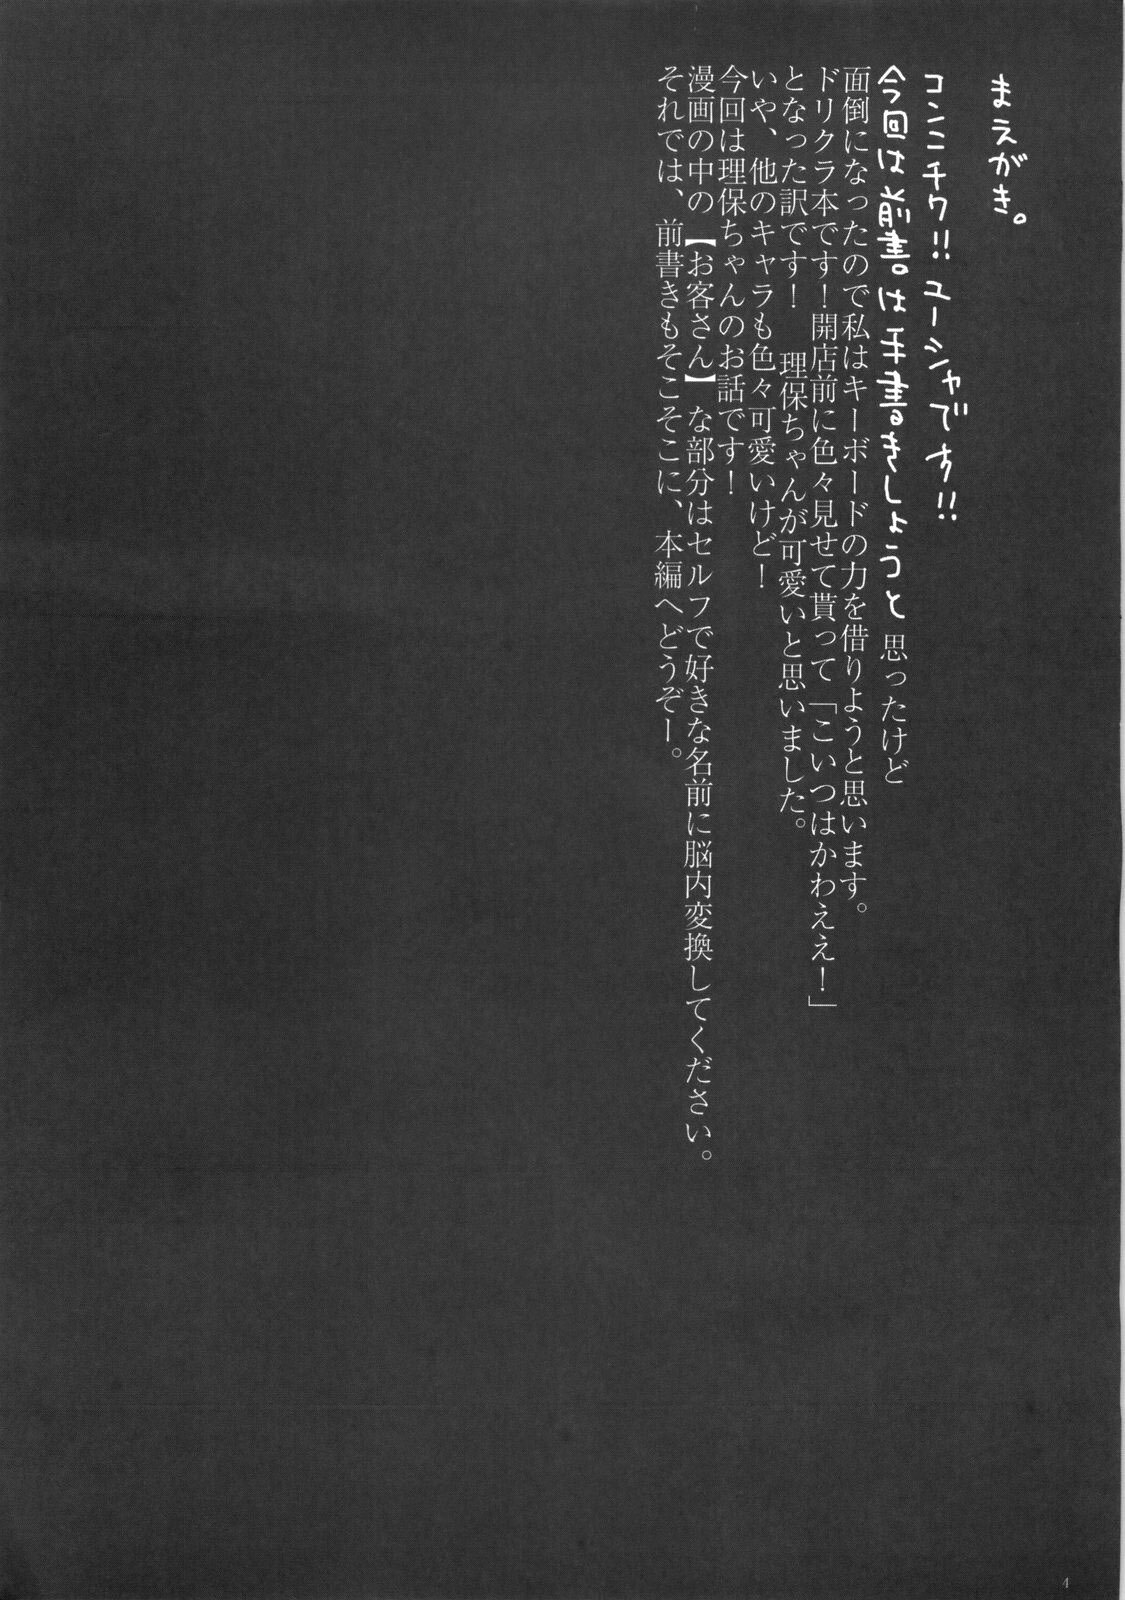 まえがき。
コンニチワ!! ユーシャです!!
今回は前書は手書きしようと思ったけど
面倒になったので私はキーボードの力を借りようと思います。
ドリクラ本です！開店前に色々見せて貰って「こいつはかわええ！」
となった訳です！　理保ちゃんが可愛いと思いました。
いや、他のキャラも色々可愛いけど！
今回は理保ちゃんのお話です！
漫画の中の【お客さん】な部分はセルフで好きな名前に脳内変換してください。
それでは、前書きもそこそこに、本編へどうぞー。
4